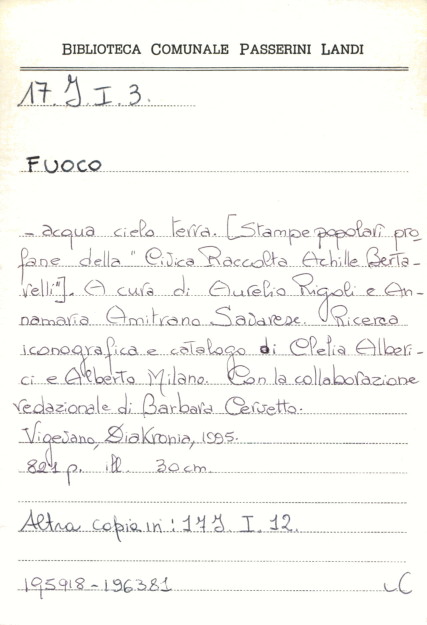 BIBLIOTECA COMUNALE PASSERINI LANDI
17. J I. 3.
FUOCO
- acqua cielo terra. [Stampe popolari pro-
fane della "Civica Raccolta Achille Berta-
relli"]. A cura di Aurelio Rigoli e An-
namaria Amitrano Savarese. Ricerca
iconografica e catalogo di Clelia Alberi-
ci e Alberto Milano. Con la collaborazione
redazionale di Barbara Cervetto.
Vigevano, Diakronia, 1995.
821 p. ill. 30 cm.
Altra copia in: 17 J. I. 12.
195918-196381